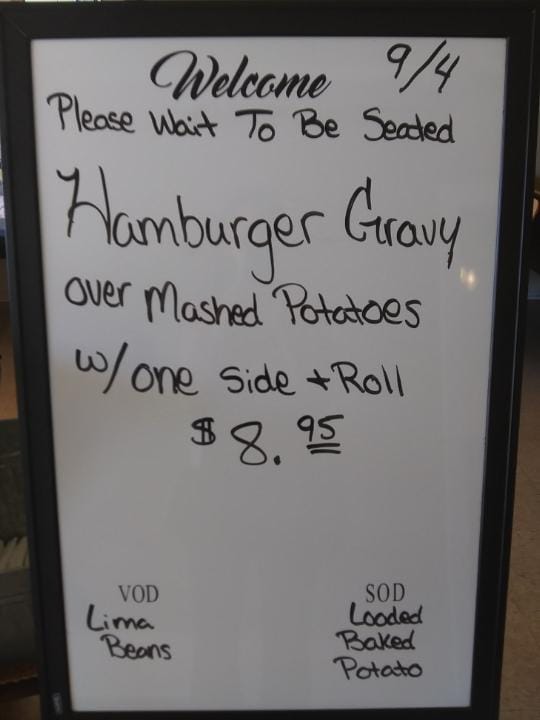 Welcome 9/4
Please Wait To Be Seated
Hamburger Gravy
over Mashed Potatoes
w/one Side + Roll
$8.95
VOD SOD
Lima Looded
Beans Baked
Potato